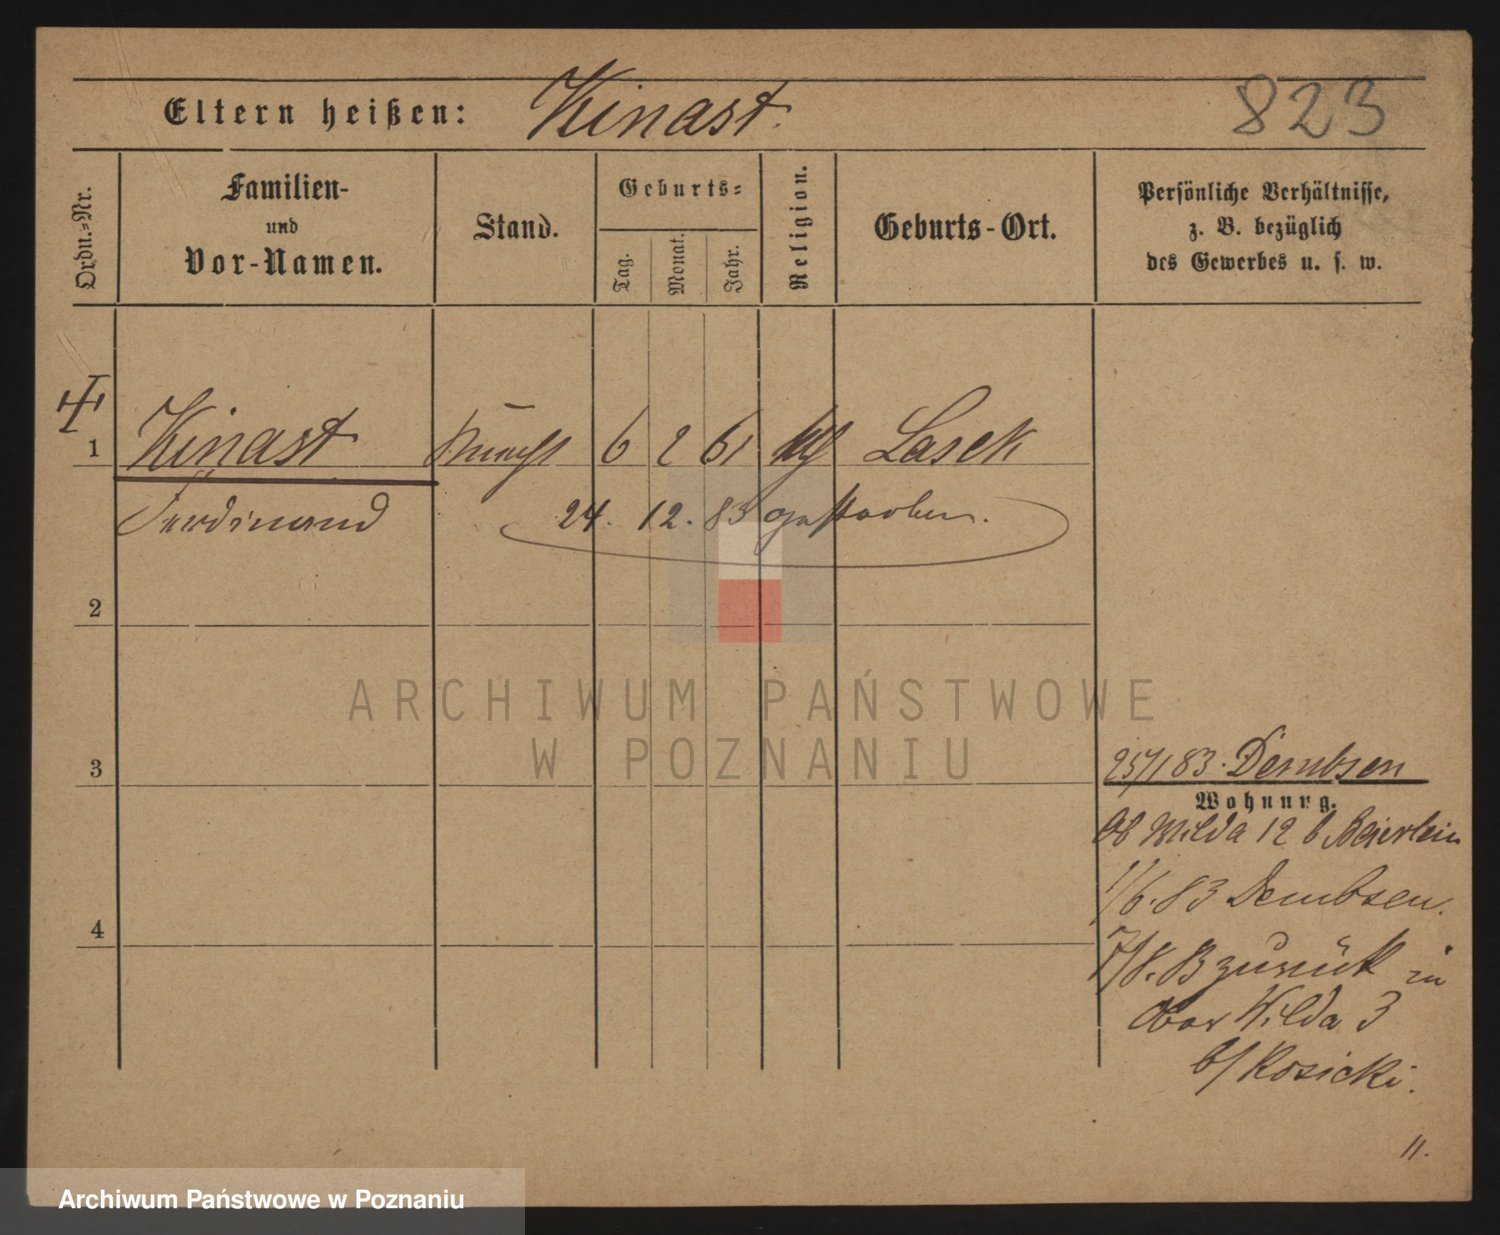 823
Eltern heißen: Kinast.
Ordn.=Nr.
Familien-
und
Vor-Namen.
Stand.
Geburts=
Tag.
Monat.
Jahr.
Religion.
Geburts-Ort.
Persönliche Verhältnisse,
z. B. bezüglich
des Gewerbes u. s. w.
1 Kinast Knecht 6 2 61 Lasek
Ferdinand 24. 12. 83 gestorben.
2
3
4
25/1 83. Dembsen
Wohnung.
Ob Wilda 12 b Baierlein
1/6. 83 Dembsen.
7/8. 83 zurück in
Ober Wilda 3
b/ Rosicki.
11.
ARCHIWUM PAŃSTWOWE
W POZNANIU
Archiwum Państwowe w Poznaniu